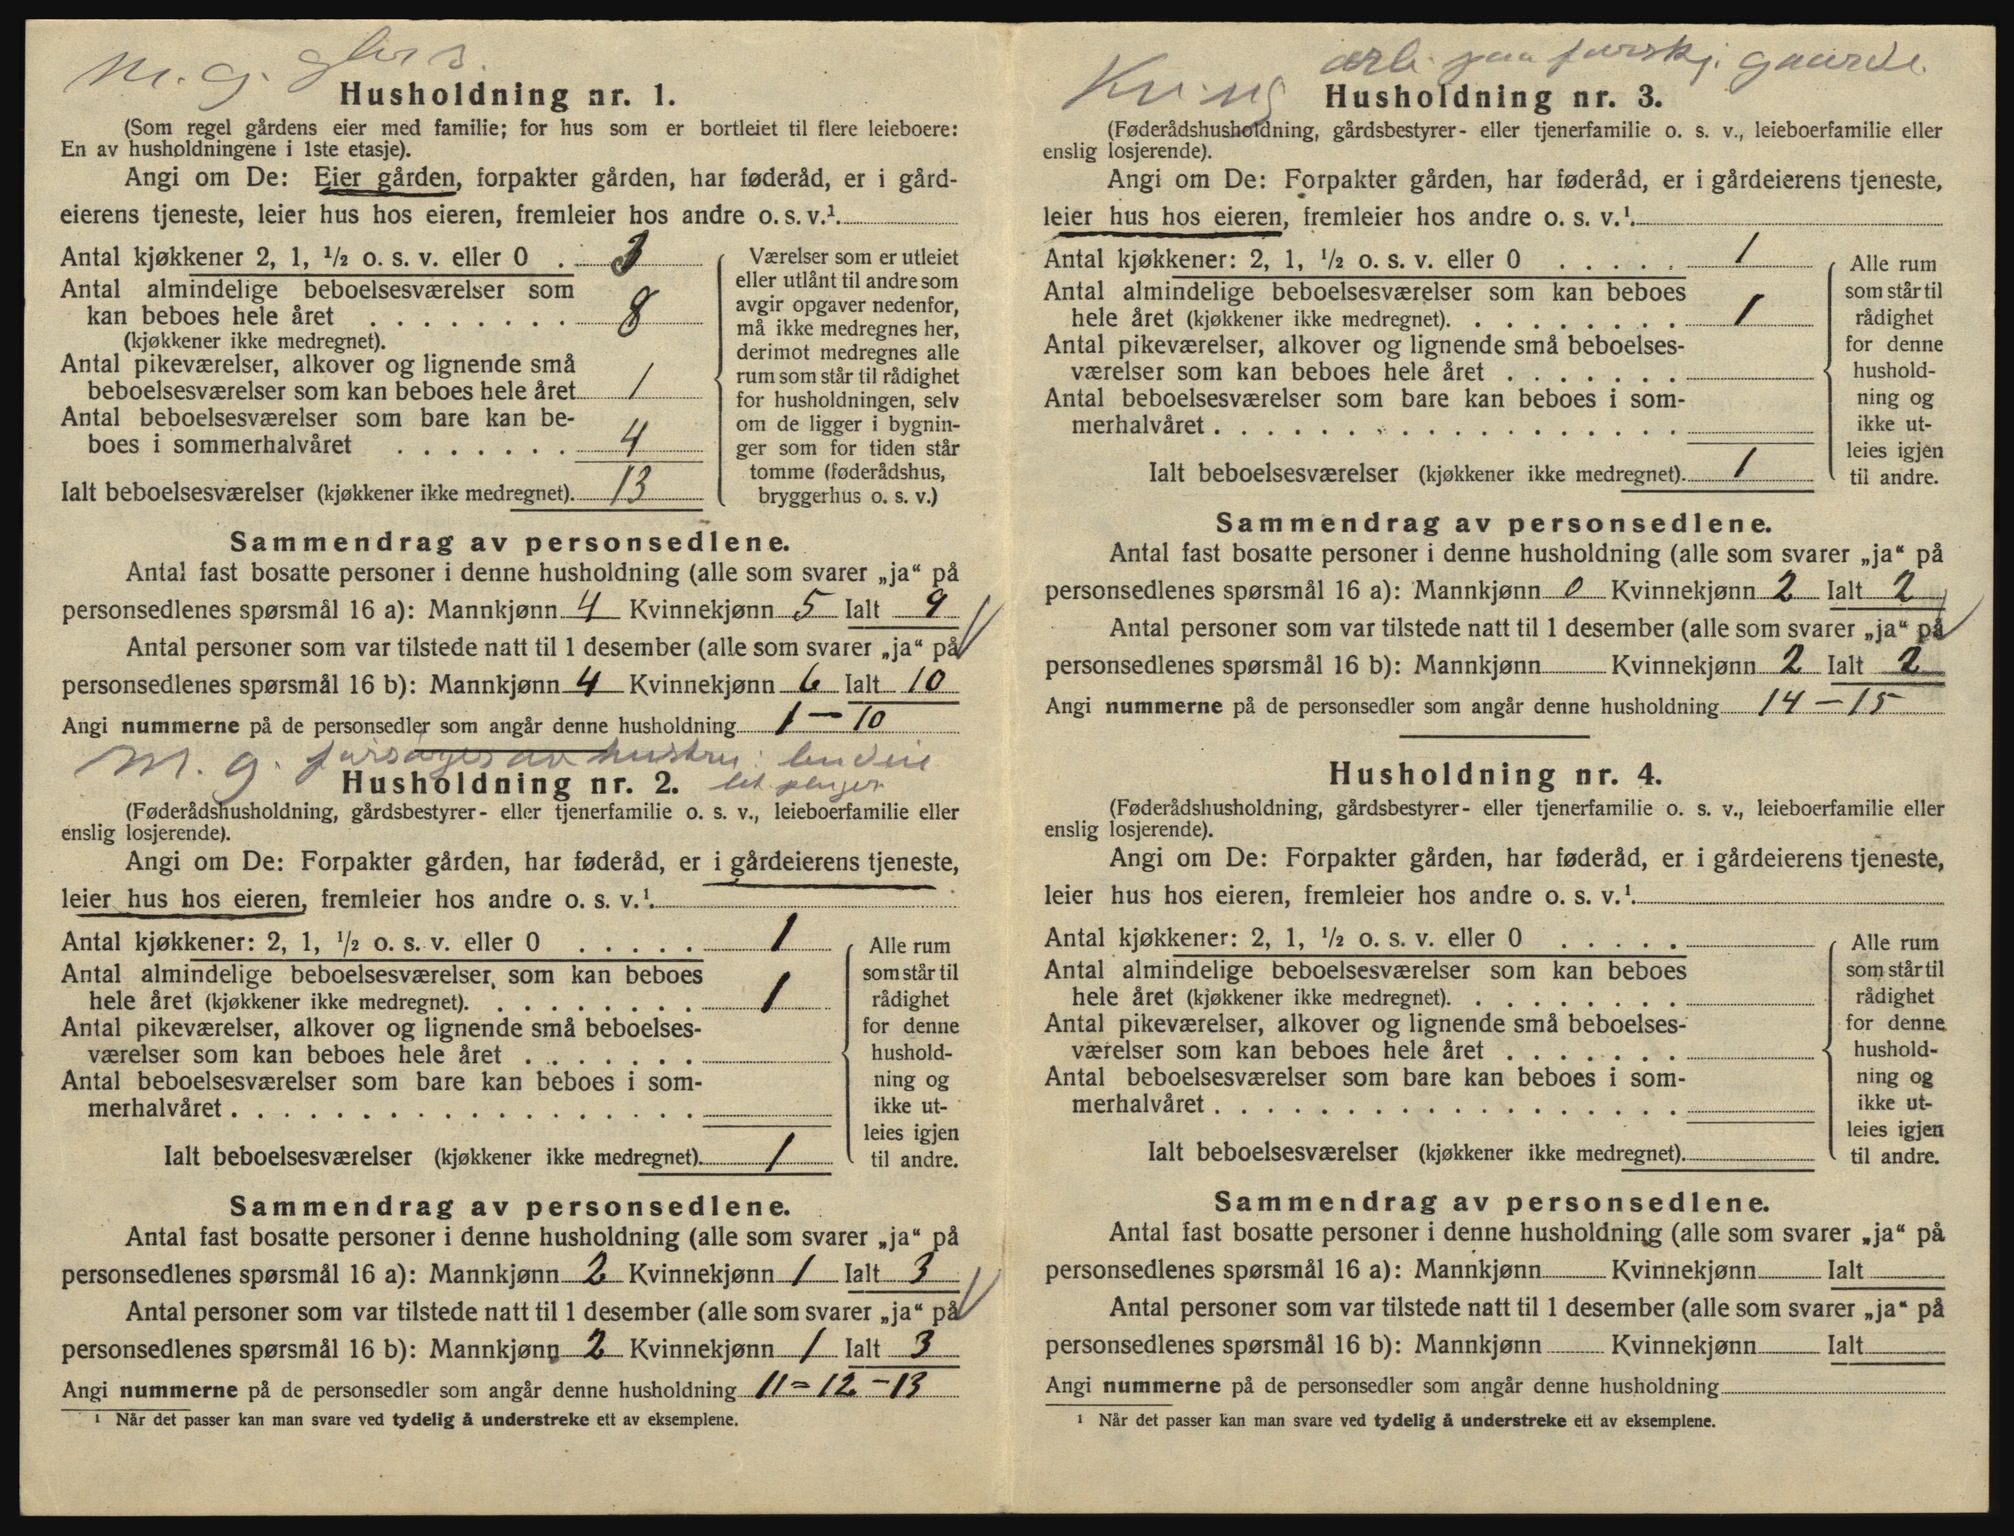 M. g. gbr s.
Husholdning nr. 1.
(Som regel gårdens eier med familie; for hus som er bortleiet til flere leieboere:
En av husholdningene i 1ste etasje).
Angi om De: Eier gården, forpakter gården, har føderåd, er i gård-
eierens tjeneste, leier hus hos eieren, fremleier hos andre o. s. v.¹.
Antal kjøkkener 2, 1, ½ o. s. v. eller 0 .
Antal almindelige beboelsesværelser som
kan beboes hele året . . . . . . . . 8
(kjøkkener ikke medregnet).
Antal pikeværelser, alkover og lignende små
beboelsesværelser som kan beboes hele året 1
Antal beboelsesværelser som bare kan be-
boes i sommerhalvåret . . . . . . . 4
Ialt beboelsesværelser (kjøkkener ikke medregnet). 13
Værelser som er utleiet
eller utlånt til andre som
avgir opgaver nedenfor,
må ikke medregnes her,
derimot medregnes alle
rum som står til rådighet
for husholdningen, selv
om de ligger i bygnin-
ger som for tiden står
tomme (føderådshus,
bryggerhus o. s. v.)
Sammendrag av personsedlene.
Antal fast bosatte personer i denne husholdning (alle som svarer „ja“ på
personsedlenes spørsmål 16 a): Mannkjønn 4 Kvinnekjønn 5 Ialt 9
Antal personer som var tilstede natt til 1 desember (alle som svarer „ja“ på
personsedlenes spørsmål 16 b): Mannkjønn 4 Kvinnekjønn 6 Ialt 10
Angi nummerne på de personsedler som angår denne husholdning 1 — 10
M. g. forsørges av hustru
Husholdning nr. 2.
(Føderådshusholdning, gårdsbestyrer- eller tjenerfamilie o. s. v., leieboerfamilie eller
enslig losjerende).
Angi om De: Forpakter gården, har føderåd, er i gårdeierens tjeneste,
leier hus hos eieren, fremleier hos andre o. s. v.¹.
Antal kjøkkener: 2, 1, ½ o. s. v. eller 0 . . . . . 1
Antal almindelige beboelsesværelser, som kan beboes
hele året (kjøkkener ikke medregnet). . . . . . . . . 1
Antal pikeværelser, alkover og lignende små beboelses-
værelser som kan beboes hele året . . . . . . .
Antal beboelsesværelser som bare kan beboes i som-
merhalvåret . . . . . . . . . . . . . . . . . .
Ialt beboelsesværelser (kjøkkener ikke medregnet). 1
Alle rum
som står til
rådighet
for denne
hushold-
ning og
ikke ut-
leies igjen
til andre.
Sammendrag av personsedlene.
Antal fast bosatte personer i denne husholdning (alle som svarer „ja“ på
personsedlenes spørsmål 16 a): Mannkjønn 2 Kvinnekjønn 1 Ialt 3
Antal personer som var tilstede natt til 1 desember (alle som svarer „ja“ på
personsedlenes spørsmål 16 b): Mannkjønn 2 Kvinnekjønn 1 Ialt 3
Angi nummerne på de personsedler som angår denne husholdning 11 = 12 — 13
¹ Når det passer kan man svare ved tydelig å understreke ett av eksemplene.
Kv. ug arb. paa forskj. gaarde.
Husholdning nr. 3.
(Føderådshusholdning, gårdsbestyrer- eller tjenerfamilie o. s. v., leieboerfamilie eller
enslig losjerende).
Angi om De: Forpakter gården, har føderåd, er i gårdeierens tjeneste,
leier hus hos eieren, fremleier hos andre o. s. v.¹.
Antal kjøkkener: 2, 1, ½ o. s. v. eller 0 . . . . . 1
Antal almindelige beboelsesværelser som kan beboes
hele året (kjøkkener ikke medregnet). . . . . . . . . 1
Antal pikeværelser, alkover og lignende små beboelses-
værelser som kan beboes hele året . . . . . . .
Antal beboelsesværelser som bare kan beboes i som-
merhalvåret . . . . . . . . . . . . . . . . . .
Ialt beboelsesværelser (kjøkkener ikke medregnet). 1
Alle rum
som står til
rådighet
for denne
hushold-
ning og
ikke ut-
leies igjen
til andre.
Sammendrag av personsedlene.
Antal fast bosatte personer i denne husholdning (alle som svarer „ja“ på
personsedlenes spørsmål 16 a): Mannkjønn 0 Kvinnekjønn 2 Ialt 2
Antal personer som var tilstede natt til 1 desember (alle som svarer „ja“ på
personsedlenes spørsmål 16 b): Mannkjønn Kvinnekjønn 2 Ialt 2
Angi nummerne på de personsedler som angår denne husholdning 14 — 15
Husholdning nr. 4.
(Føderådshusholdning, gårdsbestyrer- eller tjenerfamilie o. s. v., leieboerfamilie eller
enslig losjerende).
Angi om De: Forpakter gården, har føderåd, er i gårdeierens tjeneste,
leier hus hos eieren, fremleier hos andre o. s. v.¹.
Antal kjøkkener: 2, 1, ½ o. s. v. eller 0 . . . . .
Antal almindelige beboelsesværelser som kan beboes
hele året (kjøkkener ikke medregnet). . . . . . . . .
Antal pikeværelser, alkover og lignende små beboelses-
værelser som kan beboes hele året . . . . . . .
Antal beboelsesværelser som bare kan beboes i som-
merhalvåret . . . . . . . . . . . . . . . . . .
Ialt beboelsesværelser (kjøkkener ikke medregnet).
Alle rum
som står til
rådighet
for denne
hushold-
ning og
ikke ut-
leies igjen
til andre.
Sammendrag av personsedlene.
Antal fast bosatte personer i denne husholdning (alle som svarer „ja“ på
personsedlenes spørsmål 16 a): Mannkjønn Kvinnekjønn Ialt
Antal personer som var tilstede natt til 1 desember (alle som svarer „ja“ på
personsedlenes spørsmål 16 b): Mannkjønn Kvinnekjønn Ialt
Angi nummerne på de personsedler som angår denne husholdning
¹ Når det passer kan man svare ved tydelig å understreke ett av eksemplene.